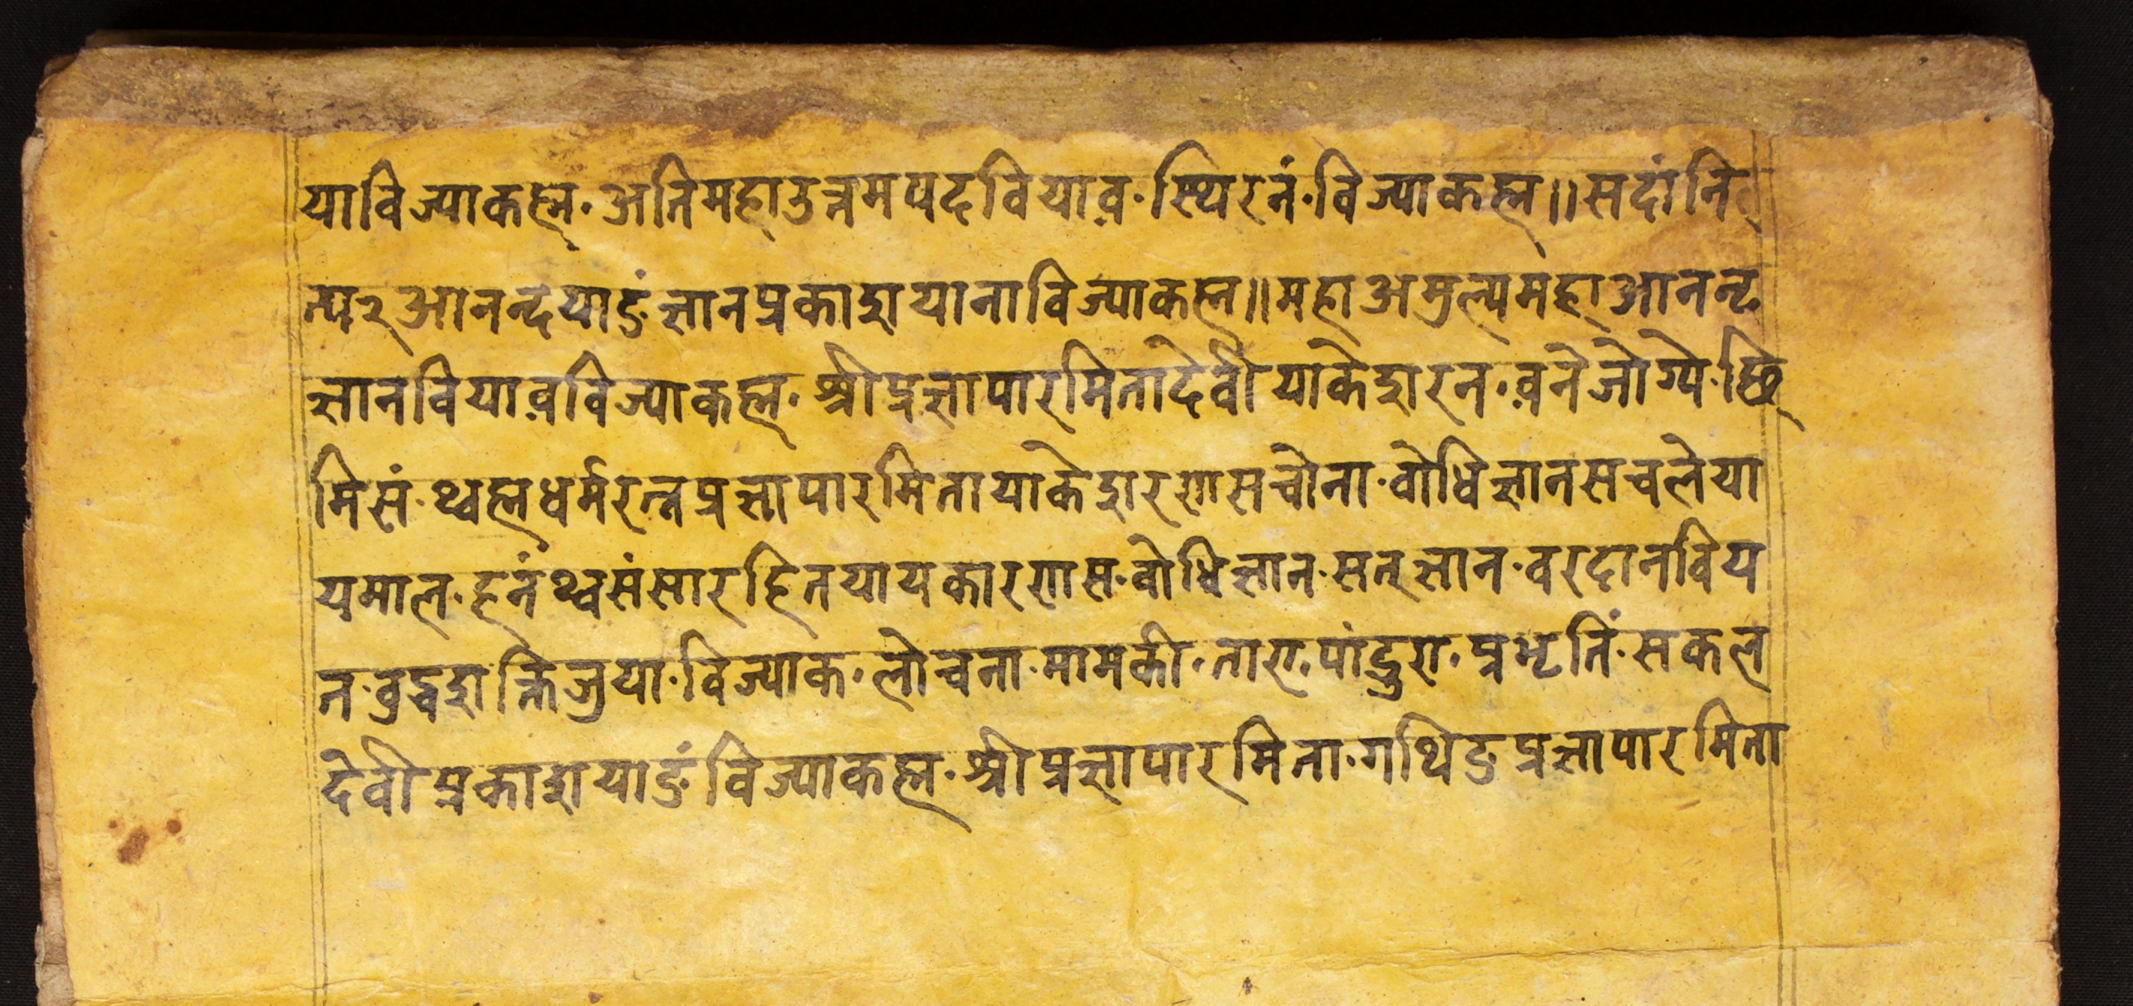 याविज्याकह्म· अतिमहाउत्तमपदवियाव़· स्थिरनं· विज्याकह्म॥ सदांनि
त्यं२आनन्दयाङं ज्ञानप्रकाशयानाविज्याकह्म॥ महाअमुल्यमहाआनन्द
ज्ञानवियाव़विज्याकह्म· श्रीप्रज्ञापारमितादेवीयाकेशरन· व़नेजोग्ये· छि
मिसं· थ्वह्मधर्मरत्नप्रज्ञापारमितायाकेशरणसचोना· वोधिज्ञानसचलेया
यमाल· हनंथ्वसंसारहितयायकारणस· वोधिज्ञान· सत्ज्ञान· वरदानविय
त· वुद्धशक्तिजुया· विज्याक· लोचना· मामकी· तारा· पांदुरा· प्रभृतिं· सकल
देवीप्रकाशयाङं विज्याकह्म· श्रीप्रज्ञापारमिता· गथिङप्रज्ञापारमिता